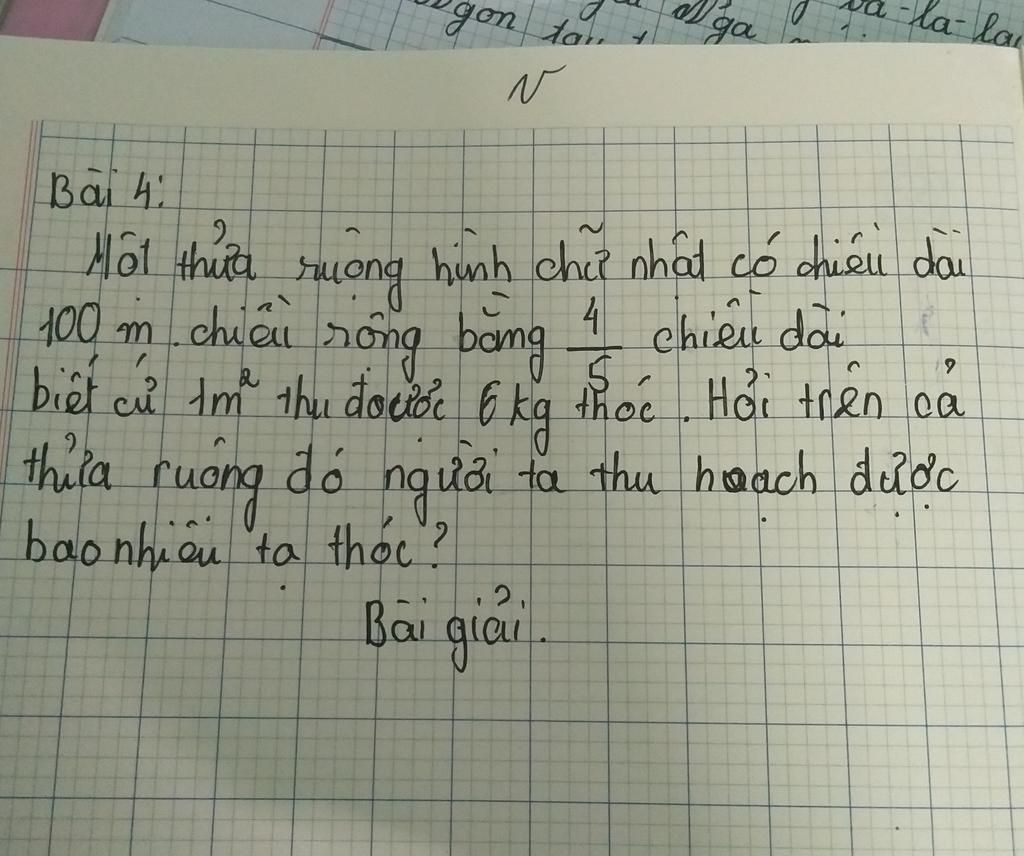 gon
ga
la-la
N
Bài 4:
Một thửa ruộng hình chữ nhật có chiều dài
100 m. chiều rộng bằng 4/5 chiều dài
biết cứ 1m² thu được 6 kg thóc. Hỏi trên cả
thửa ruộng đó người ta thu hoạch được
bao nhiêu tạ thóc?
Bài giải.